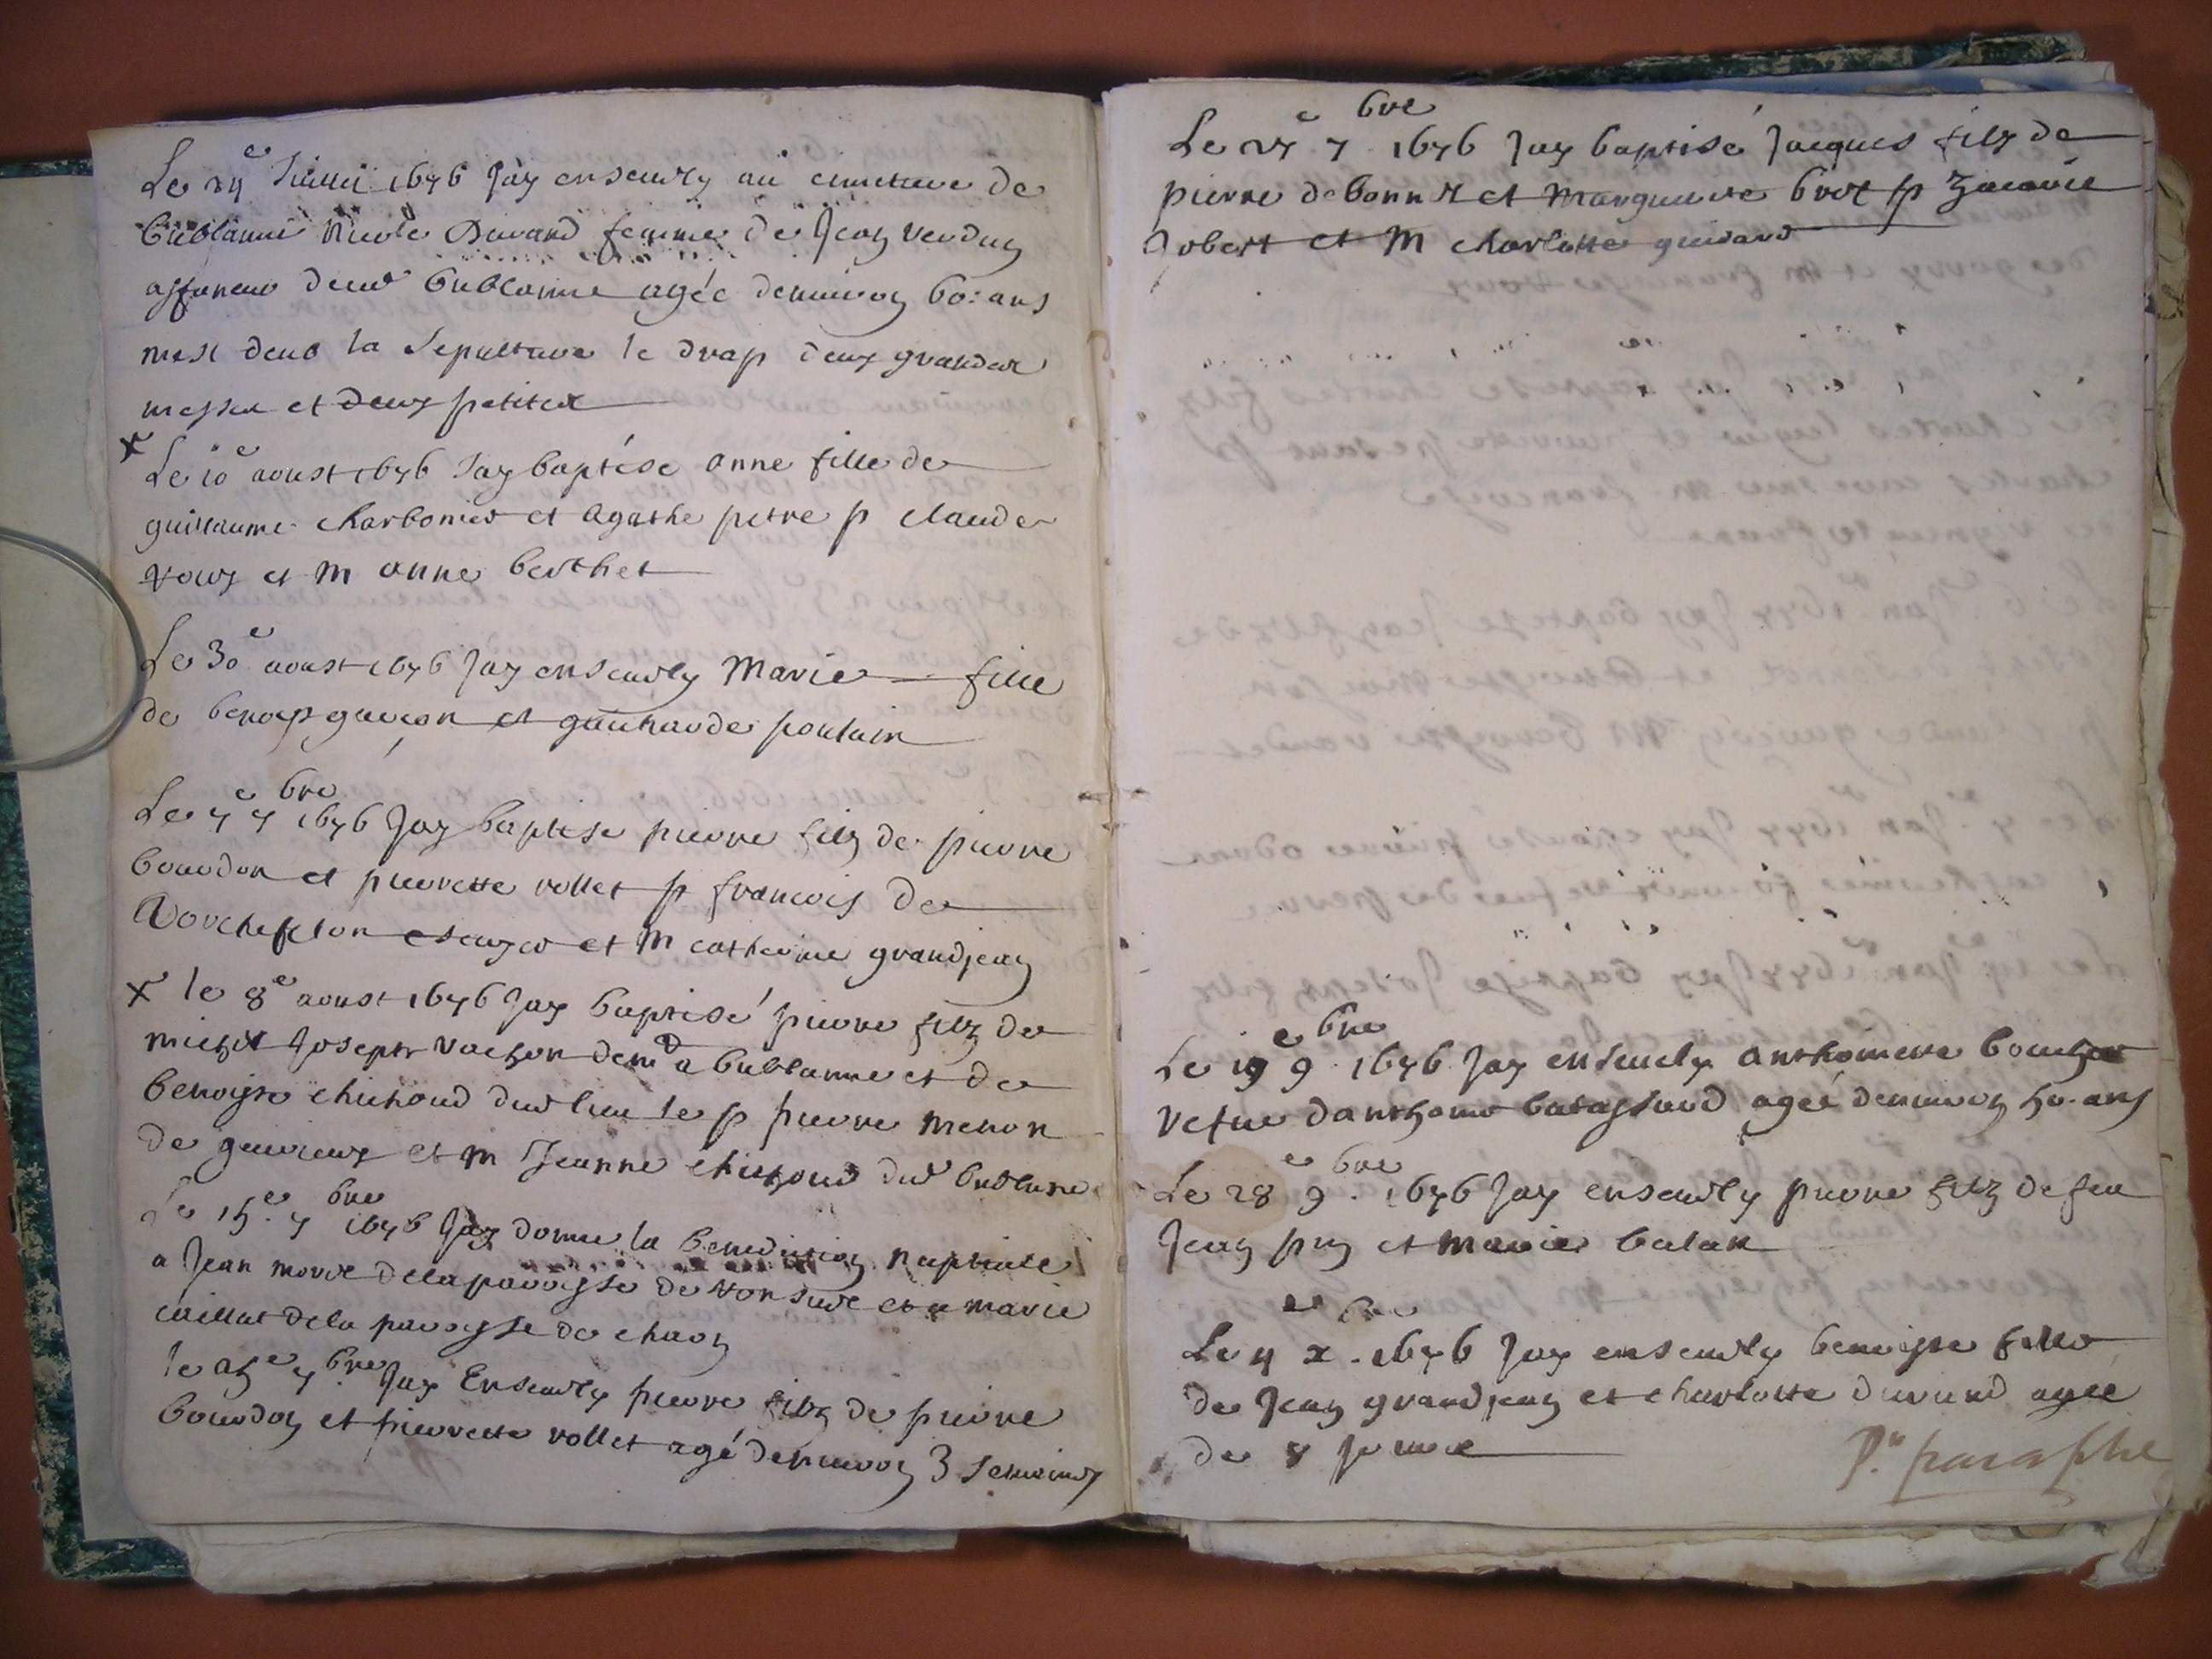 Le 24e Juillet 1676 Jay ensevely au cimetiere de
bublanne nicole Durand femme de Jean verdun
affaneur dud bublanne agée denuiron 60: ans
mest deub la sepulture le drap deux grandes
messes et deux petites
x Le 10e aoust 1676 Jay baptise anne fille de
guillaume charbonier et agathe petre p claude
roux et m anne berthet
Le 30e aoust 1676 Jay ensevely Marie fille
de benoist et poulain
Le 7e 7bre 1676 Jay baptise pierre filz de pierre
bourdon et pierrette rollet p francois de
Rochefelon escuyer et m catherine grandjean
x le 8e aoust 1676 Jay baptisé pierre filz de
michel Joseph vachon demt a bublanne et de
benoiste chichoud dud lieu le p pierre menon
de et m Jeanne chichoud dud bublane
Le 15e 7bre 1676 Jay donne la benediction nuptiale
a Jean de la paroisse de et a marie
caillat de la paroisse de
le 25e 7bre Jay Ensevely pierre filz de pierre
bourdon et pierrette rollet agé denuiron 3 semaines
Le 27e 7bre 1676 Jay baptisé Jacques filz de
pierre debonnet et marguerite brot p Zacarie
Jobert et m charlotte guirard
Le 19e 9bre 1676 Jay ensevely anthoinette
vefue danthoine agée denuiron 50 ans
Le 28e 9bre 1676 Jay ensevely pierre filz de feu
Jean pin et marie balan
Le 4e xbre 1676 Jay ensevely benoiste fille
de Jean grandjean et charlotte durand agee
de 8 jours
Pr. paraphe